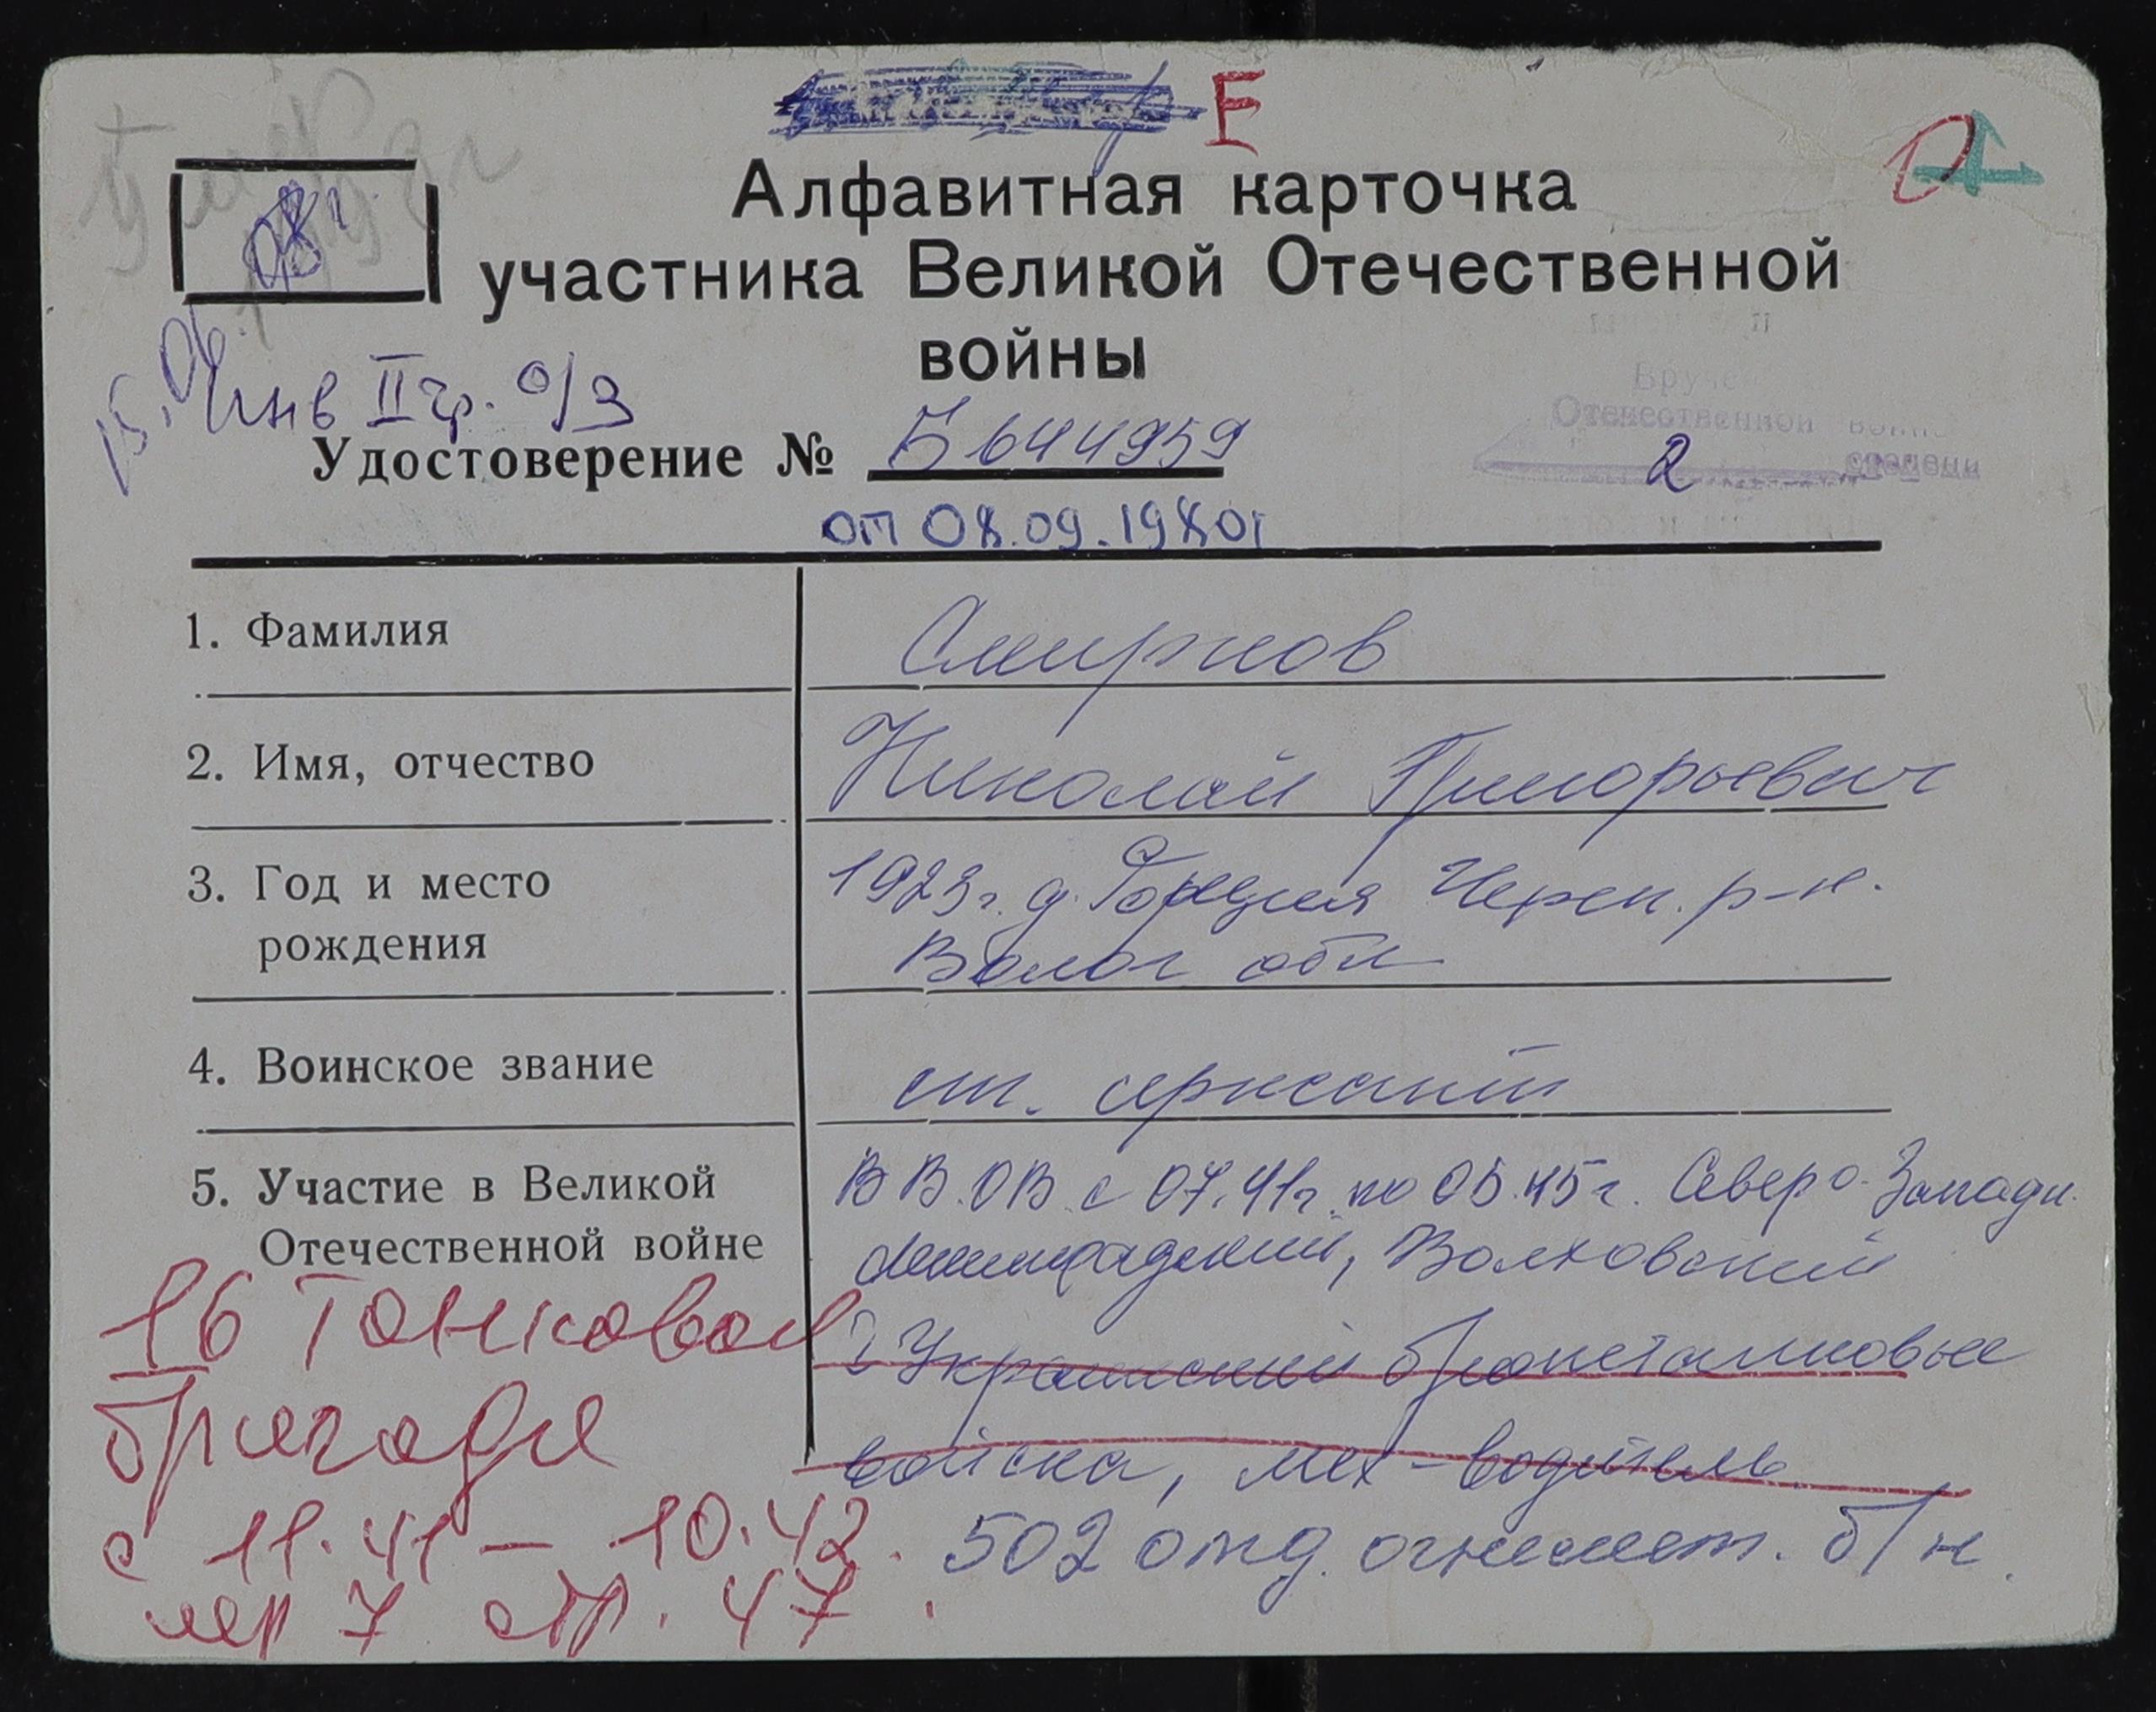 Е
Умер
08г.
Алфавитная карточка
участника Великой Отечественной
войны
Инв II гр. о/з
Удостоверение № Б 644959
от 08.09.1980г
Отечественной войны
2 степени
1. Фамилия
Смирнов
2. Имя, отчество
Николай Григорьевич
3. Год и место
рождения
1923г. д. Череп. р-н.
Волог обл
4. Воинское звание
ст. сержант
5. Участие в Великой
Отечественной войне
В В.ОВ с 07.41г. по 05.45г. Северо-Западн.
Ленинградский, Волховский
2 Украинский бронетанковые
войска, мех-водитель
502 отд. огнемет. б/н
16 Танковой
бригады
с 11.41 – 10.42.
пер 7 стр. 47